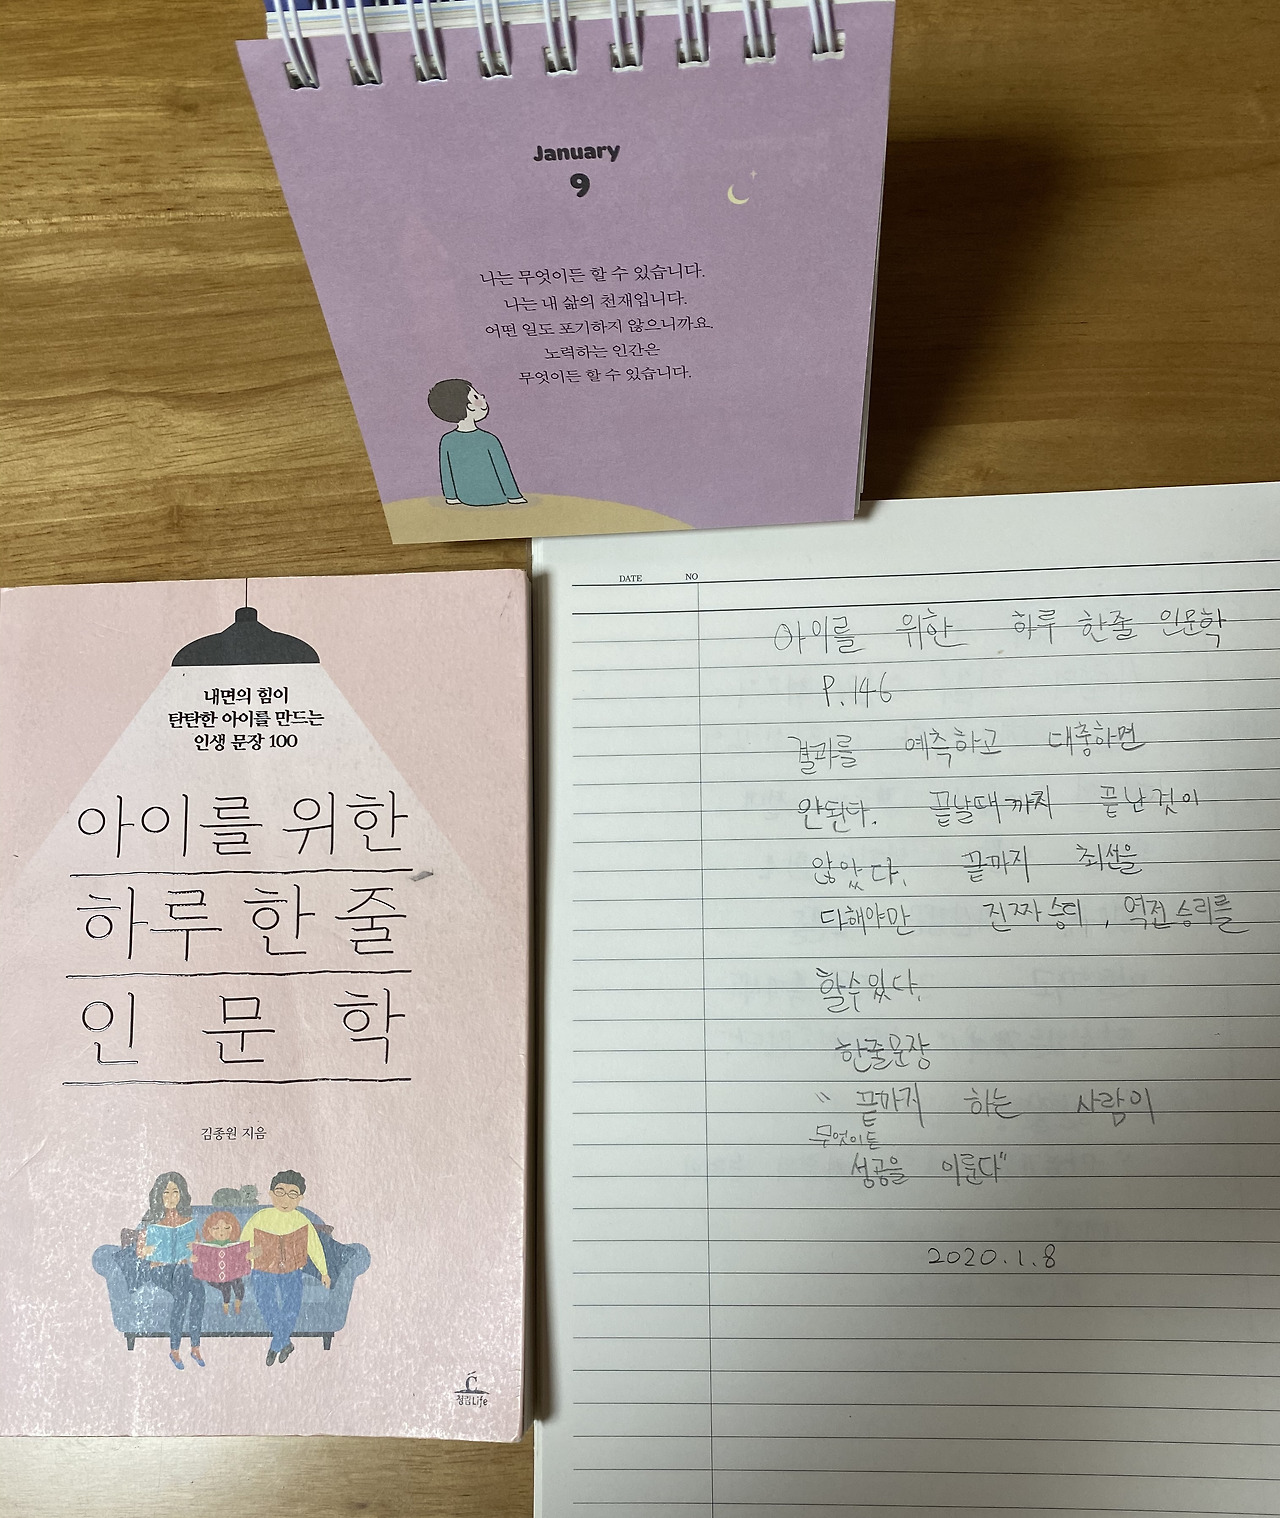 January
9
나는 무엇이든 할 수 있습니다.
나는 내 삶의 천재입니다.
어떤 일도 포기하지 않으니까요.
노력하는 인간은
무엇이든 할 수 있습니다.
내면의 힘이
탄탄한 아이를 만드는
인생 문장 100
아이를 위한
하루 한 줄
인문학
김종원 지음
청림Life
DATE NO
아이를 위한 하루 한줄 인문학
P.146
결과를 예측하고 대충하면
안된다. 끝날때 까지 끝난것이
않았다. 끝까지 최선을
다해야만 진짜 승리, 역전 승리를
할수있다.
한줄문장
" 끝까지 하는 사람이
무엇이든
성공을 이룬다"
2020.1.8